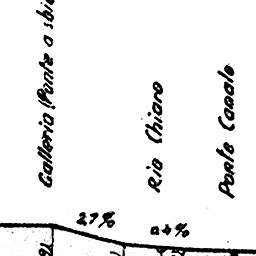 Galleria (Ponte a sbi
Rio Chiaro
Ponte Canale
2.7%
0.4%